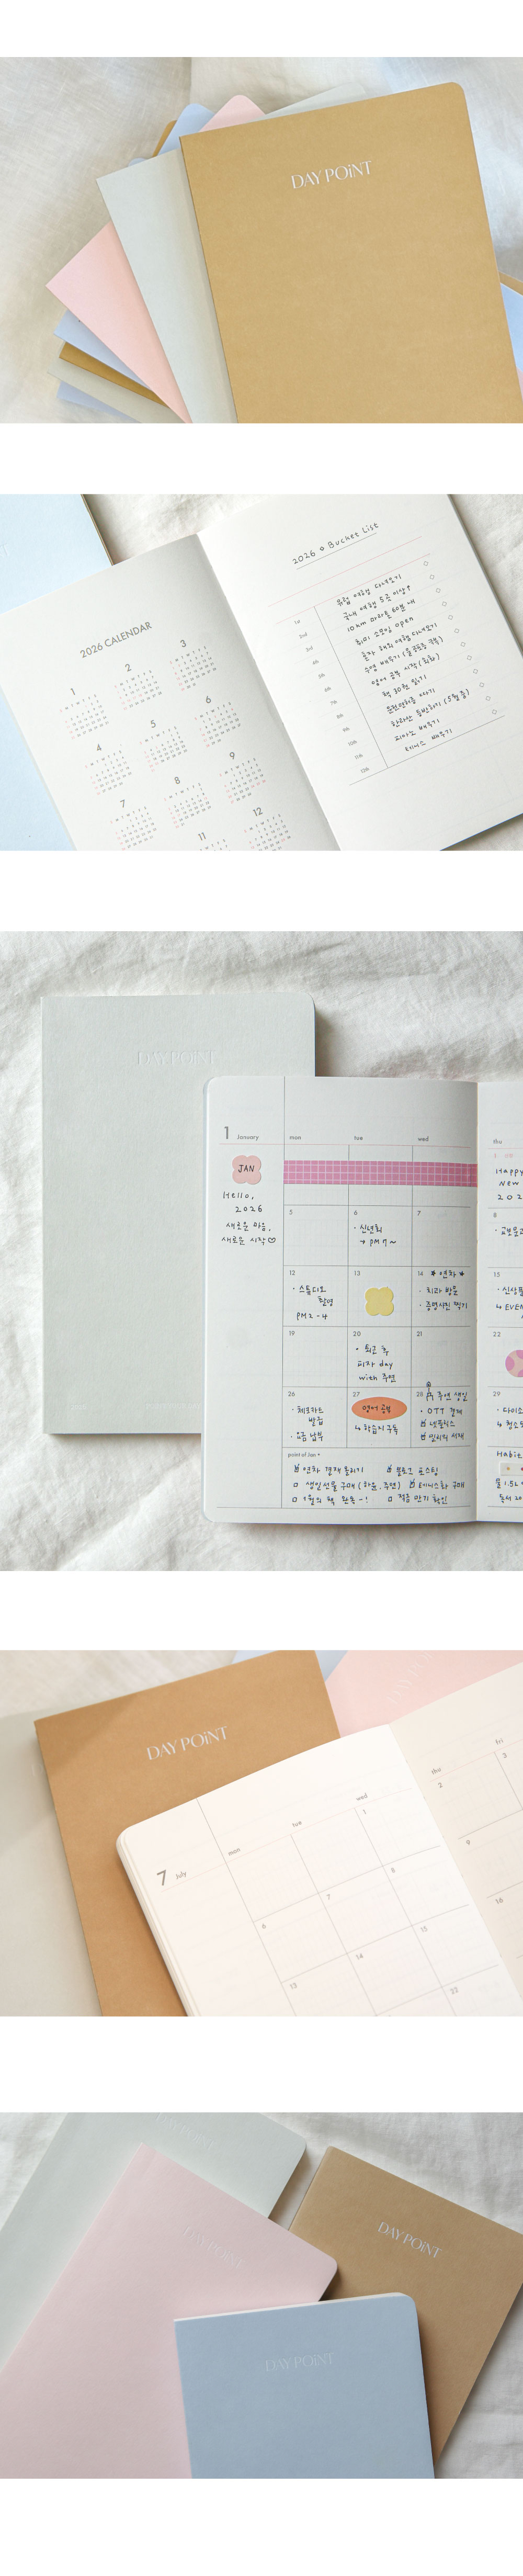 DAY POiNT
2026 CALENDAR
1
2
3
4
5
6
7
8
9
11
12
2026 ⋄ Bucket List
1st 유럽 여행 다녀오기
2nd 국내 여행 5곳 이상!
3rd 10km 마라톤 60분 내
4th 취미 소모임 open
5th 혼자 해외 여행 다녀오기
6th 수영 배우기
7th 영어 공부 시작 (회화)
8th 책 30권 읽기
9th 운전면허증 따기
10th 한라산 등반하기 (5월 중)
11th 피아노 배우기
12th 테니스 배우기
DAY POiNT
1 January
mon
tue
wed
thu
JAN
Hello,
2026
새로운 마음,
새로운 시작♡
1
Happy
New
202
5
6
· 신년회
→ PM 7~
7
8
12
· 스튜디오
촬영
PM 2-4
13
14 * 연차 *
· 치과 방문
· 증명사진 찍기
15
· 신상
↳ EVEN
19
20
· 퇴근 후
피자 day
with 주연
21
22
26
· 체크카드
발급
· 요금 납부
27
영어 공부
↳ 학습지 구독
28 주연 생일
· OTT 결제
넷플릭스
밀리의 서재
29
· 다이소
point of Jan •
연차 결재 올리기
블로그 포스팅
생일선물 구매 (하은, 주연)
테니스화 구매
1월의 책 완독-!
적금 만기 확인
Habit
물 1.5L
독서 20
DAY POiNT
7 July
mon
tue
wed
thu
fri
1
2
3
6
7
8
9
13
14
15
16
22
DAY POiNT
DAY POiNT
DAY POiNT
DAY POiNT